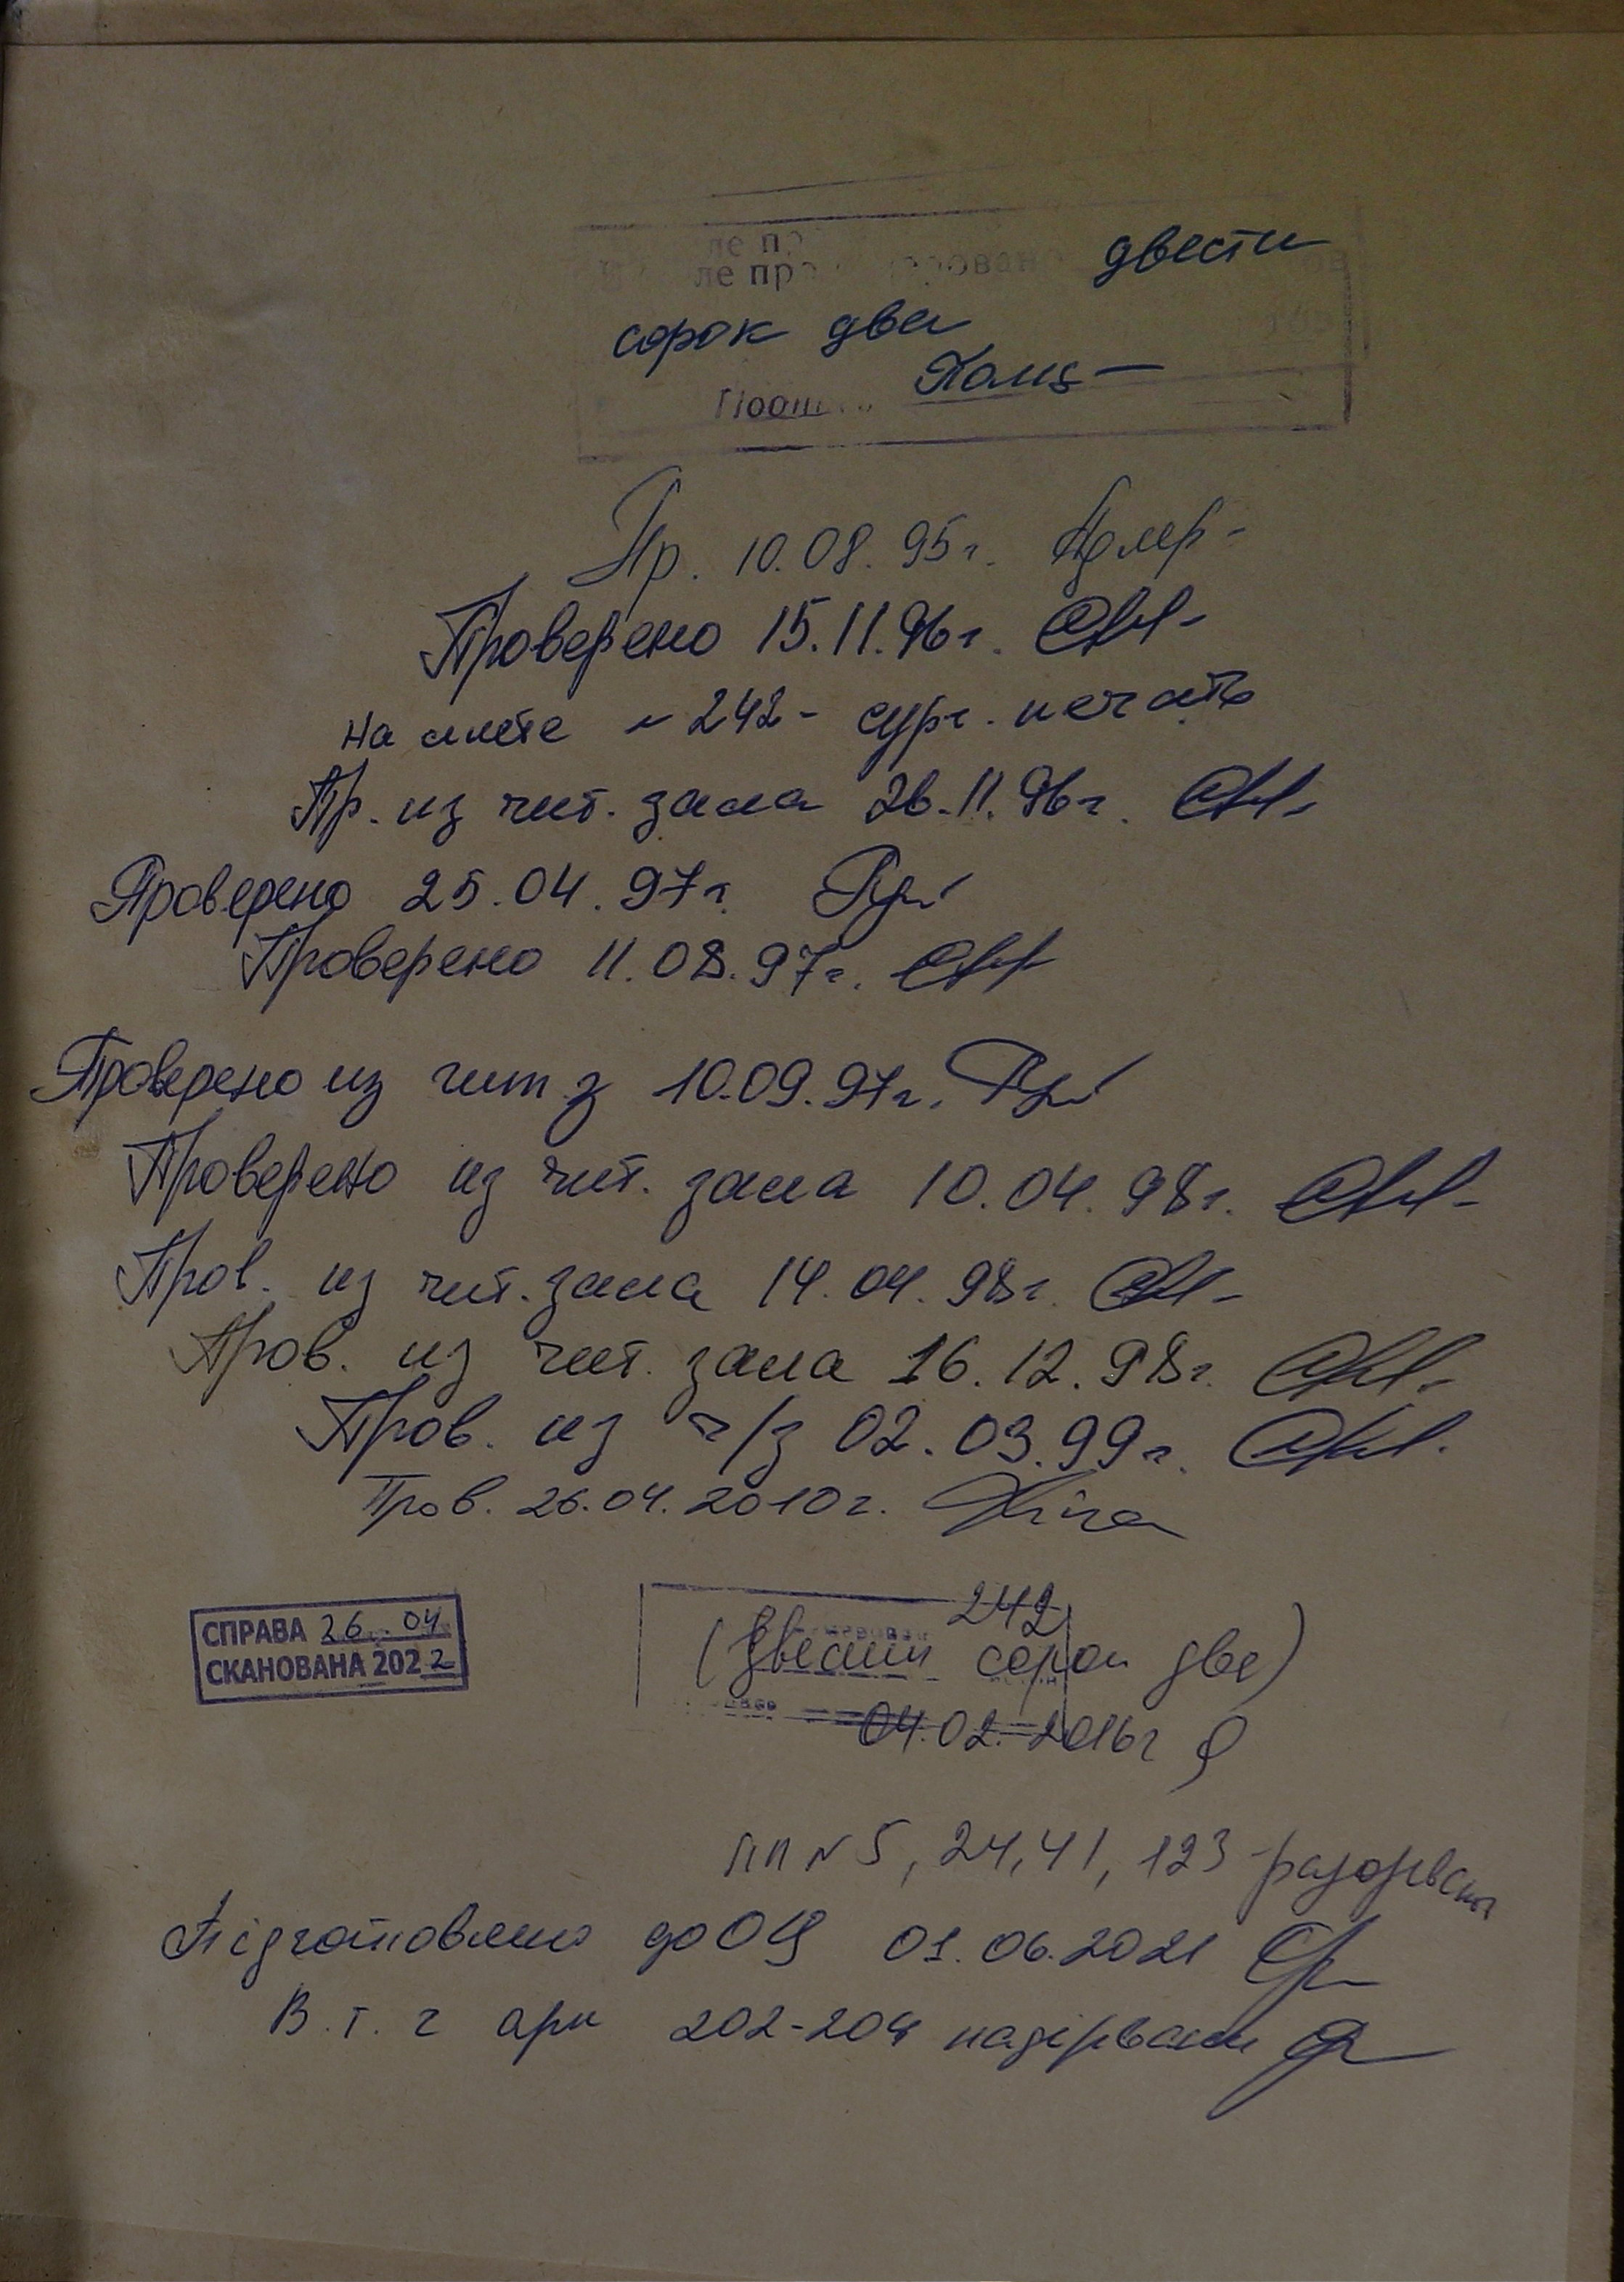 двести
сорок два
Пр. 10.08.95г.
Проверено 15.11.96г.
на листе № 242 - сург. печать
Пр. из чит. зала 26.11.96г.
Проверено 25.04.97г.
Проверено 11.08.97г.
Проверено из чит з 10.09.97г.
Проверено из чит. зала 10.04.98г.
Пров. из чит. зала 14.04.98г.
Пров. из чит. зала 16.12.98г.
Пров. из ч/з 02.03.99г.
Пров. 26.04.2010г.
СПРАВА 26.04
СКАНОВАНА 2022
242
(двести сорок два)
04.02.2016г
лл № 5, 24, 41, 123 - разорваны
Підготовлено до 01.06.2021
В.т.ч арк 202-204 надірвани